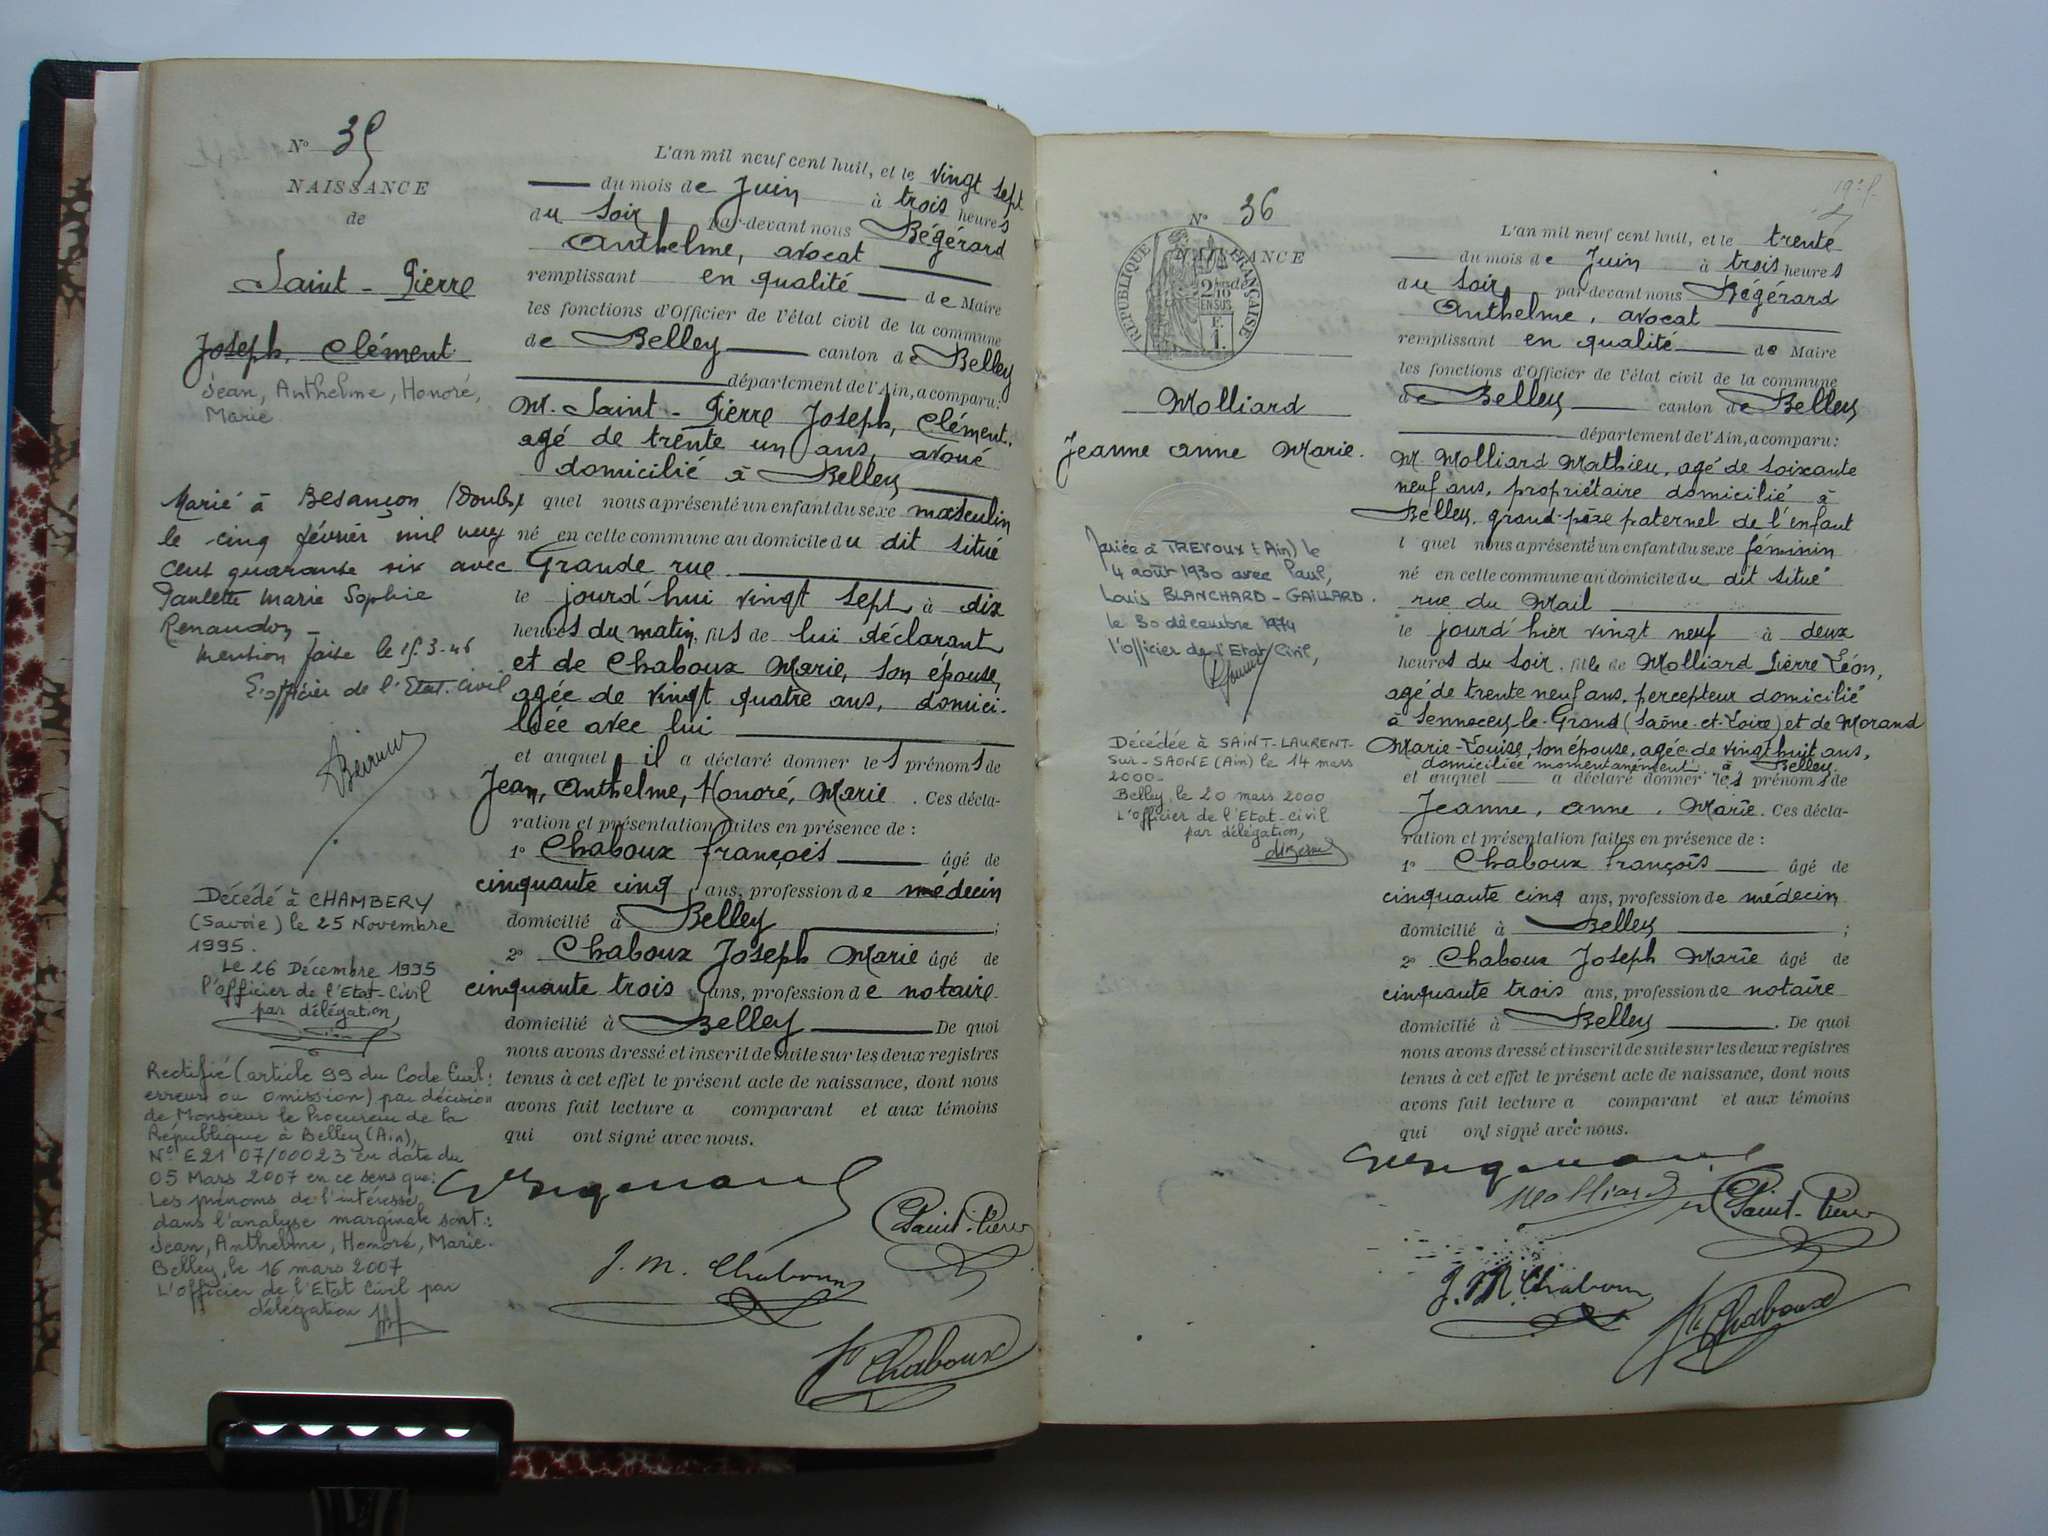 N° 35
NAISSANCE
de
Saint-Pierre
Joseph, Clément
Jean, Anthelme, Honoré,
Marie
Marié à Besançon (Doubs)
le cinq février mil neuf
cent quarante six avec
Paulette Marie Sophie
Renaudon
Mention faite le 15-3-46
L'officier de l'Etat-Civil
Décédé à CHAMBERY
(Savoie) le 25 Novembre
1995.
Le 26 Décembre 1995
l'officier de l'Etat-Civil
par délégation,
Rectifié (article 99 du Code Civil:
erreur ou omission) par décision
de Monsieur le Procureur de la
République à Belley (Ain),
N° E21 07/00023 en date du
05 Mars 2007 en ce sens que:
Les prénoms de l'intéressé
dans l'analyse marginale sont:
Jean, Anthelme, Honoré, Marie.
Belley, le 16 mars 2007
L'officier de l'Etat Civil par
délégation
L'an mil neuf cent huit, et le vingt sept
du mois de Juin à trois heures
du soir par-devant nous Bégérard
Anthelme, avocat
remplissant en qualité de Maire
les fonctions d'Officier de l'état civil de la commune
de Belley canton de Belley
département de l'Ain, a comparu:
M. Saint-Pierre Joseph, Clément,
agé de trente un ans, avoué
domicilié à Belley
quel nous a présenté un enfant du sexe masculin
né en cette commune au domicile du dit situé
Grande rue
le jourd'hui vingt sept à dix
heures du matin, fils de lui déclarant
et de Chaboux Marie, son épouse,
agée de vingt quatre ans, domici-
liée avec lui
et auquel il a déclaré donner les prénoms de
Jean, Anthelme, Honoré, Marie. Ces décla-
ration et présentation faites en présence de :
1° Chaboux François âgé de
cinquante cinq ans, profession de médecin
domicilié à Belley ;
2° Chaboux Joseph Marie âgé de
cinquante trois ans, profession de notaire
domicilié à Belley De quoi
nous avons dressé et inscrit de suite sur les deux registres
tenus à cet effet le présent acte de naissance, dont nous
avons fait lecture a comparant et aux témoins
qui ont signé avec nous.
Saint-Pierre
J. M. Chaboux
Chaboux
N° 36
NAISSANCE
de
RÉPUBLIQUE FRANÇAISE
2/10
EN SUS
F.
1.
Molliard
Jeanne Anne Marie.
Mariée à TREVOUX (Ain) le
4 août 1930 avec Paul,
Louis BLANCHARD-GAILLARD.
le 30 décembre 1974
l'officier de l'Etat Civil,
Décédée à SAINT-LAURENT-
sur-SAONE (Ain) le 14 mars
2000-
Belley, le 20 mars 2000
L'officier de l'Etat-Civil
par délégation,
L'an mil neuf cent huit, et le trente
du mois de Juin à trois heures
du soir par-devant nous Bégérard
Anthelme, avocat
remplissant en qualité de Maire
les fonctions d'Officier de l'état civil de la commune
de Belley canton de Belley
département de l'Ain, a comparu:
M Molliard Mathieu, agé de soixante
neuf ans, propriétaire domicilié à
Belley, grand-père paternel de l'enfant
l quel nous a présenté un enfant du sexe féminin
né en cette commune au domicile du dit situé
rue du Mail
le jourd'hier vingt neuf à deux
heures du soir, fille de Molliard Pierre Léon,
agé de trente neuf ans, percepteur domicilié
à Sennecey-le-Grand (Saône-et-Loire) et de Morand
Marie-Louise, son épouse, agée de vingt huit ans,
domiciliée momentanément à Belley
et auquel a déclaré donner les prénoms de
Jeanne, Anne, Marie. Ces décla-
ration et présentation faites en présence de :
1° Chaboux François âgé de
cinquante cinq ans, profession de médecin
domicilié à Belley ;
2° Chaboux Joseph Marie âgé de
cinquante trois ans, profession de notaire
domicilié à Belley. De quoi
nous avons dressé et inscrit de suite sur les deux registres
tenus à cet effet le présent acte de naissance, dont nous
avons fait lecture a comparant et aux témoins
qui ont signé avec nous.
Molliard
Saint-Pierre
J. M. Chaboux
Chaboux